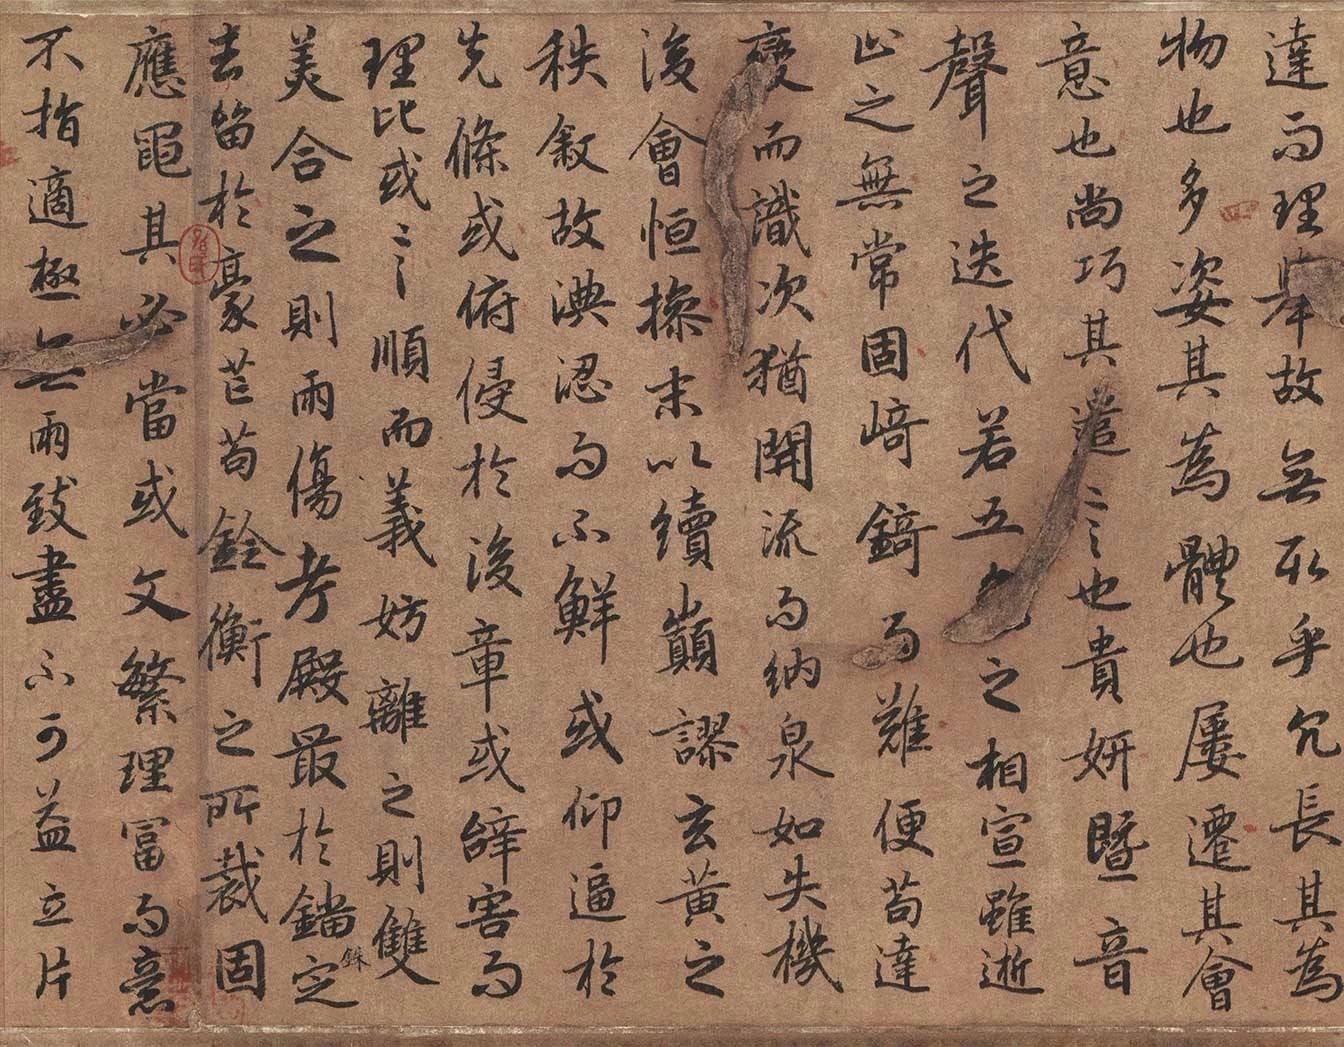 達而理舉故無取乎冗長其為
物也多姿其為體也屢遷其會
意也尚巧其遣〻之也貴妍暨音
聲之迭代若五色之相宣雖逝
止之無常固崎錡而難便苟達
變而識次猶開流而納泉如失機
後會恒操末以續巔謬玄黃之
秩敘故淟涊而不鮮或仰逼於
先條或俯侵於後章或辭害而
理比或〻之順而義妨離之則雙
美合之則兩傷考殿最於錙定
銖
去留於豪芒苟銓衡之所裁固
應繩其必當或文繁理富而意
不指適極無兩致盡不可益立片